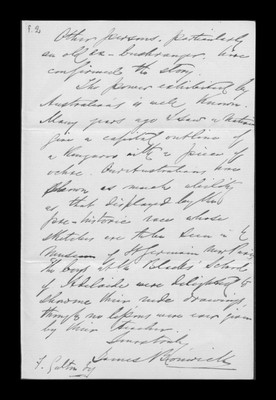 Other persons, particularly
an old ex-bushranger, have
confirmed the story.
The power exhibited by
Australians is well known.
Many years ago I saw a Native
give a capital outline of
a Kangaroo with a piece of
ochre. Our Australians have
shown as much ability
as that displayed by the
pre-historic race whose
sketches are to be seen in the
Museum of St Germain
The boys at the Blacks' School
of Adelaide were delighted to
show me their rude drawings,
though no lessons were ever given
by their teacher.
Sincerely
James Bonwick
F. Galton Esq